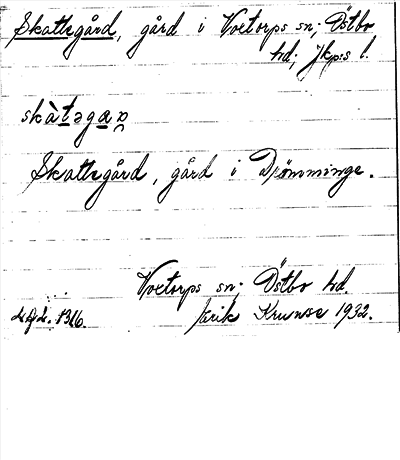 Skattegård, gård i Voxtorps sn; Östbo
hd; Jkp:s l.
skàtəgaɲ
Skattegård, gård i Drömminge.
Voxtorps sn; Östbo hd.
1316.
Erik Krunse 1932.